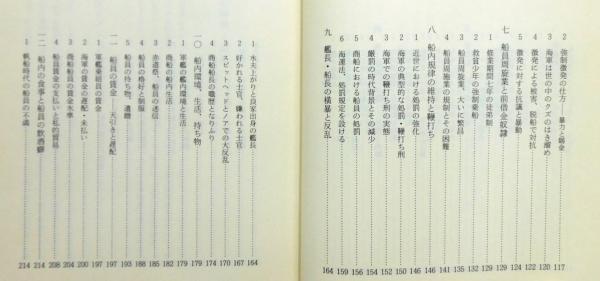 2 強制徴発の仕方――暴力と賜金 117
3 海軍は世の中のクズのはき溜め 120
4 徴発による被害、脱船で対抗 122
5 徴発に対する抗議と暴動 124
七 船員周旋業と前借金奴隷 129
1 修業期間七年の徒弟制 129
2 救貧少年の強制乗船 132
3 船員周旋業、大いに繁昌 135
4 船員周旋業の規制とその困難 141
八 船内規律の維持と鞭打ち 146
1 近世における処罰の強化 146
2 海軍の典型的な処罰・鞭打ち刑 150
3 海軍での鞭打ち刑の実態 152
4 厳罰の時代背景とその減少 154
5 商船における船員の処罰 156
6 海運法、処罰規定を設ける 159
九 艦長・船長の横暴と反乱 164
1 水夫上がりと良家出身の艦長 164
2 好かれる士官、嫌われる士官 167
3 スピットヘッドとノアでの大反乱 170
4 商船船長の となりふり 174
一〇 船内環境、生活、持ち物 179
1 軍艦の艦内環境と生活 179
2 商船の船内生活 182
3 赤道祭、船員の迷信 185
4 船員の格好と制服 188
5 船員の持ち物、遺贈 193
一一 船員の賃金――天引きと遅配 197
1 軍艦乗組員の賃金 197
2 海軍の賃金の遅配・未払い 200
3 商船船員の賃金水準 204
4 船員賃金の支払いと私的貿易 208
一二 船内の食事と船員の飲酒癖 214
1 帆船時代の船員の不満 214